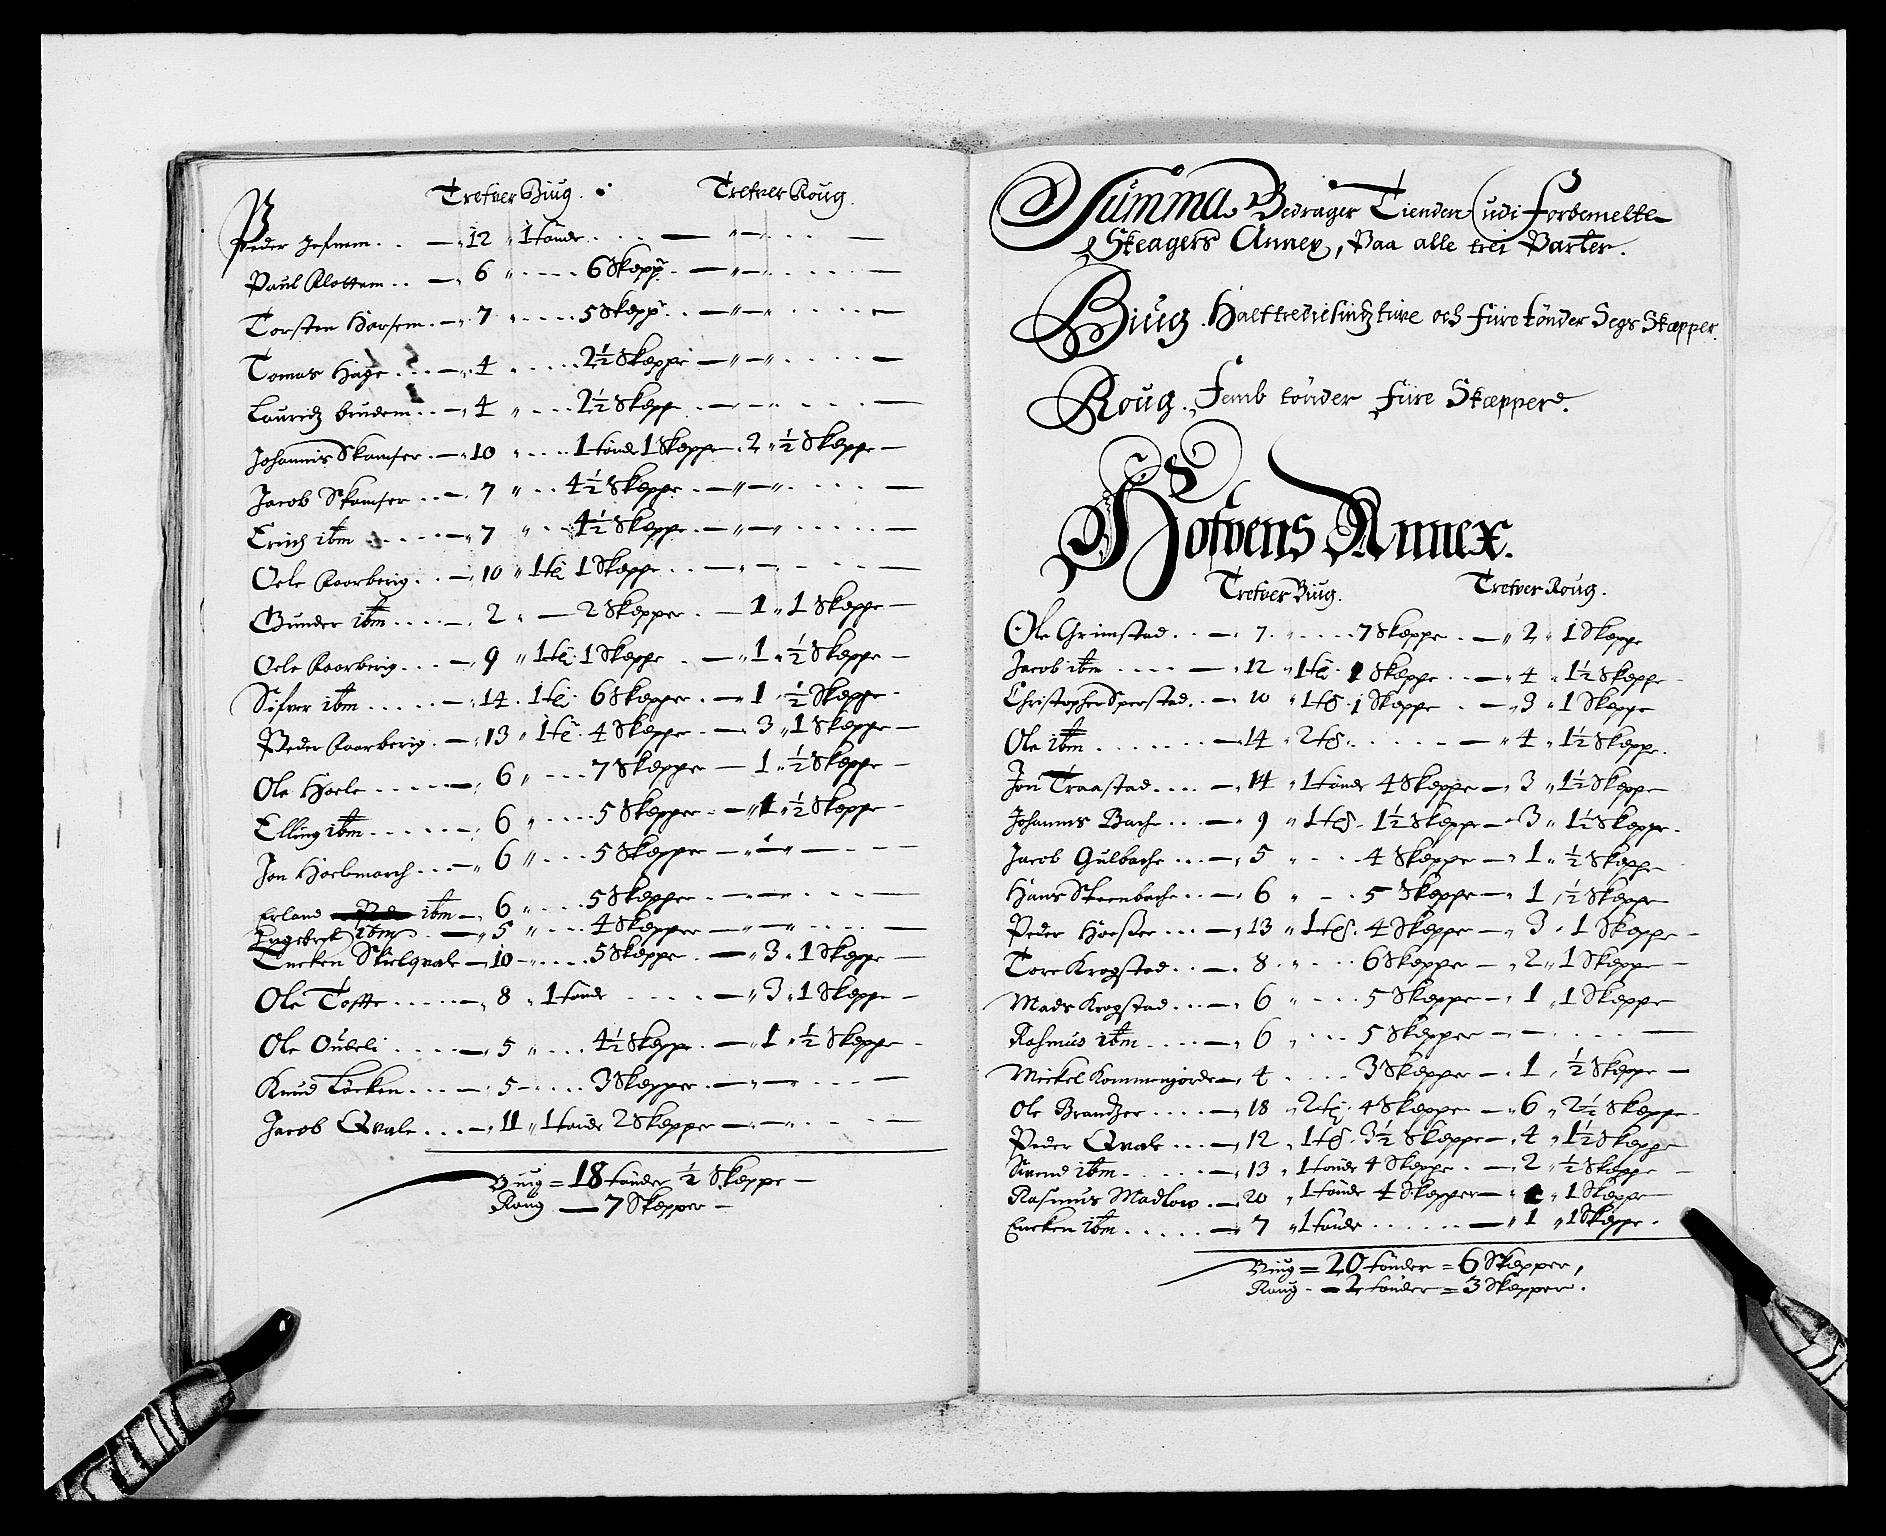 Trefver Biug. Trefver Roug.
Peder Jefnem . . — 12 " 1 tønde . . . — " — " . . . —
Paul Klottem . . — 6 " . . . . 6 Skepp . — " — " . . . —
Torsten Horsem . . — 7 " . . . . 5 Skepp . . — " — " . . . —
Tomas Hage . . . — 4 . . . . . 2½ Skeppe — " — " . . . —
Lauridz bruдem . . — 4 " . . . . 2½ Skepp . . — " — . . . —
Johannis Skamfer . — 10 " . . . . 1 tønde 1 Skeppe . 2 " ½ Skeppe —
Jacob Skamfer . . — 7 " . . 4½ Skeppe . . — " — " . . . —
Erich ibm . . . . . — 7 " . . 4½ Skeppe . — " — . . . . —
Oele Kaarberig . . — 10 " 1 tø 1 Skeppe . . — " — . . . —
Gunder ibm . . . . — 2 " — 2 Skepper . — 1 " 1 Skeppe —
Oele Kaarberig . . . — 9 " 1 tø 1 Skeppe . — " 1 " ½ Skeppe —
Sifver ibm . . . . . — 14 . 1 tø . 6 Skepper . — 1 " ½ Skeppe -
Peder Kaarberig . — 13 " 1 tø . 4 Skeppe . — 3 " 1 Skeppe —
Ole Hoele . . . . . — 6 " . . . 7 Skepper — 1 " ½ Skeppe —
Elling ibm . . . . . . — 6 " . . . . 5 Skepper . — " 1 " ½ Skeppe -
Jon Hoelsmarch . . . — " 6 " . . . 5 Skeppe — " — " — . . . —
Erland ibm — 6 " . . . . 5 Skepper . — . — . . . —
Engebret ibm . . — 5 " . . . 4 Skepper — " — " . . . —
Encken Skielqvale — 10 - . . . . 5 Skeppe . — " 3 " 1 Skeppe —
Ole Toffte . . . . . — 8 " 1 tønde . . . . — " 3 " 1 Skeppe —
Ole Oubeli . . . . — 5 " . . . 4½ Skeppe . — " 1 " ½ Skeppe -
Knud Løcken . . . — 5 - . . . 3 Skepper . — " — . . . —
Jacob Qvale . . . — 11 " 1 tønde 2 Skepper — . — " . . . —
Biug = 18 tønder ½ Skeppe —
Roug — 7 Skepper —
Summa Bedrager Tienden udi forbemelte
Skeagers Annex, Paa alle trei Parter.
Biug. Halftredisindztiuve och fiire tønder Segs Skæpper.
Roug. Femb tønder fiire Skæpper.
Hofvens Annex.
Trefver Biug. Trefver Roug.
Ole Grimstad . . — 7 . " . . . . 7 Skeppe . . — " 2 " 1 Skeppe
Jacob ibm . . . . — 12 " 1 tø . 1 Skeppe . . — " 4 " 1½ Skeppe -
Christopher Sperstad . . — 10 " 1 tø . 1 Skeppe . — " 3 " 1 Skeppe
Ole ibm . . . . . . . — 14 " 2 tø . . . . . — " 4 " 1½ Skeppe.
Jon Traastad . . . . — 14 " 1 tønde 4 Skeppe — " 3 " 1½ Skeppe —
Johannis Bache . . . — " 9 " 1 tø . 1½ Skeppe — " 3 " 1½ Skeppe.
Jacob Gulbache . . . — " 5 " . . . 4 Skeppe — " 1 " ½ Skeppe
Hans Steenbache . . . — 6 " - . 5 Skeppe — " 1 " ½ Skeppe
Peder Hoeßer . . . — 13 " 1 tø . 4 Skeppe — " 3 " 1 Skeppe —
Tore Krogstad . . . — 8 . " . . . 6 Skeppe — " 2 " 1 Skeppe —
Mads Krogstad . . . — 6 " . . . 5 Skeppe — " 1 " 1 Skeppe
Rasmus ibm . . . . — " 6 " . . . 5 Skepper — — . . . —
Mickel Kommengjorde — " 4 . . . . 3 Skepper — " 1 " ½ Skeppe —
Ole Brandzer . . . . — 18 " 2 tø . 4 Skeppe — " 6 " 2½ Skeppe -
Peder Qvale . . . . — 12 " 1 tø . 3½ Skeppe — " 4 " 1½ Skeppe
Svend ibm . . . . . — 13 " 1 tønde 4 Skeppe . — " 2 " ½ Skeppe —
Rasmus Madlow . . — 20 " 1 tønde 4 Skepper — " " 1 Skeppe —
Encken ibm . . . . . — 7 " 1 tønde . . . . . — " 1 " 1 Skeppe .
Biug = 20 tønder = 6 Skepper,
Roug - — 2 tønder = 3 Skepper .